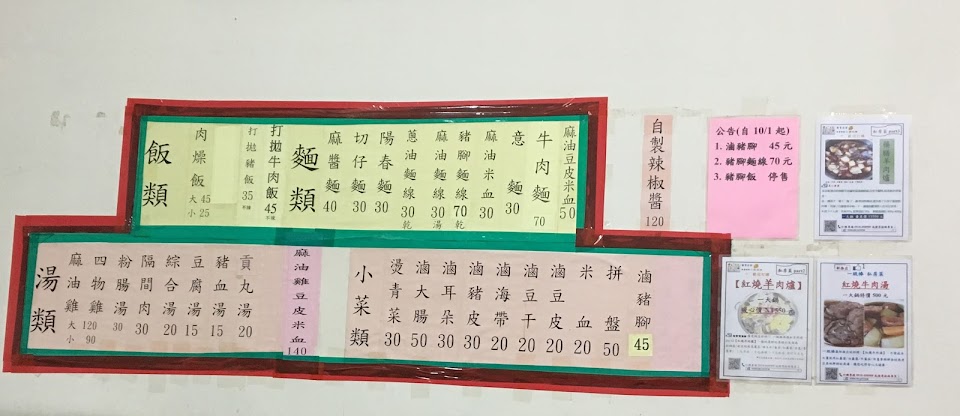 飯類
肉燥飯 大45 小25
打拋豬飯 35
打拋牛肉飯 45
麵類
麻醬麵 40
切仔麵 30
陽春麵 30
蔥油麵線 30
麻油麵線 30 湯
豬腳麵線 70 乾
麻油米血 30
意麵 30
牛肉麵 70
麻油豆皮米血 50
自製辣椒醬 120
公告(自 10/1 起)
1. 滷豬腳 45 元
2. 豬腳麵線 70 元
3. 豬腳飯 停售
湯類
麻油雞 大 120 小 90
四物雞
粉腸湯 30
隔間肉 30
綜合湯 20
豆腐湯 15
豬血湯 15
貢丸湯 20
麻油雞豆皮米血 140
小菜類
燙青菜 30
滷大腸 50
滷耳朵 30
滷豬皮 30
滷海帶 20
滷豆干 20
滷豆皮 20
米血 20
拼盤 50
滷豬腳 45
【紅燒羊肉爐】
一大鍋
紅燒牛肉湯
一大鍋特價 500 元